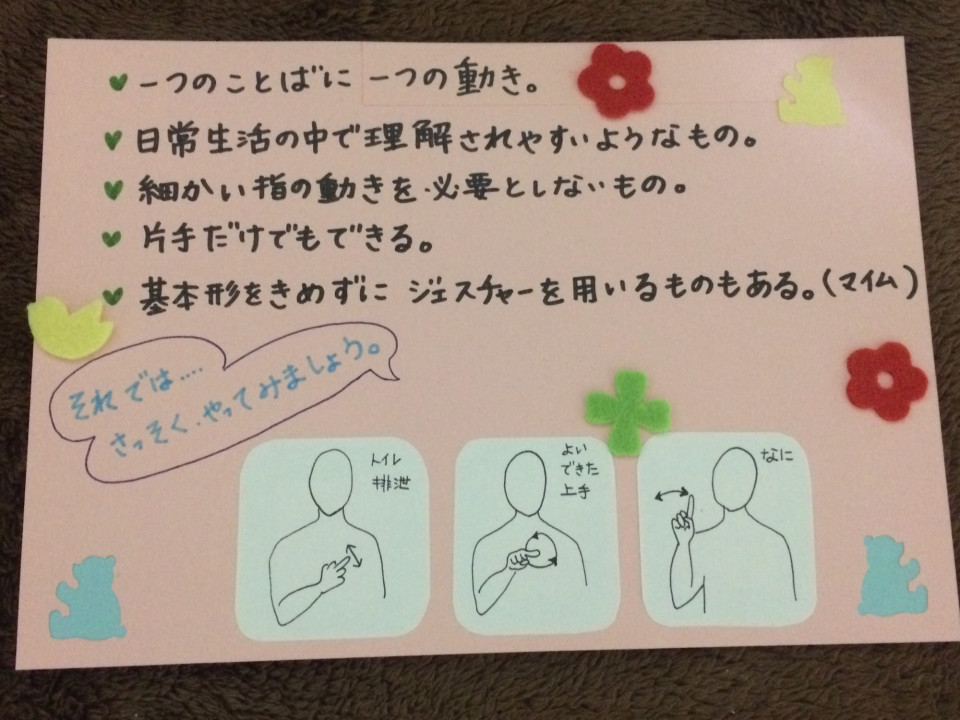 一つのことばに 一つの動き。
日常生活の中で理解されやすいようなもの。
細かい指の動きを必要としないもの。
片手だけでもできる。
基本形をきめずに ジェスチャーを用いるものもある。(マイム)
それでは....
さっそく、やってみましょう。
トイレ
排泄
よい
できた
上手
なに